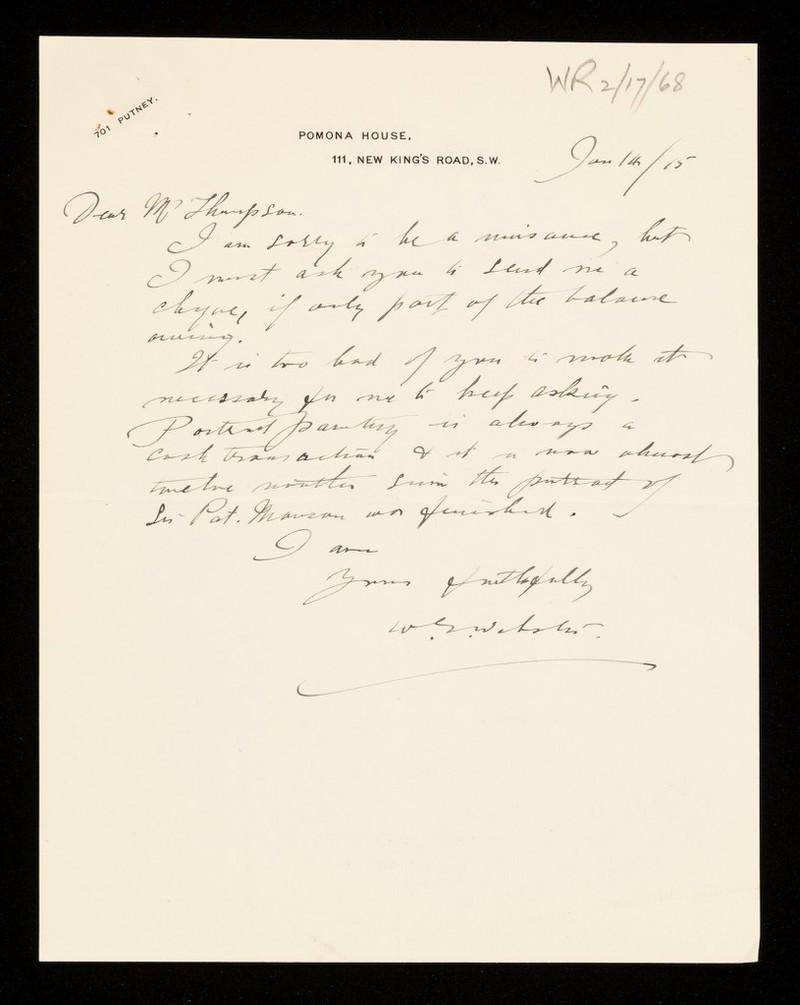 WR 2/17/68
701 PUTNEY.
POMONA HOUSE,
111, NEW KING'S ROAD, S.W.
Jan 14/15
Dear Mr Thompson.
I am sorry to be a nuisance, but
I must ask you to send me a
cheque, if only part of the balance
owing.
It is too bad of you to make it
necessary for me to keep asking.
Portrait painting is always a
cash transaction & it is now almost
twelve months since the portrait of
Sir Pat. Manson was finished.
I am
Yours faithfully
W. G. Webster.